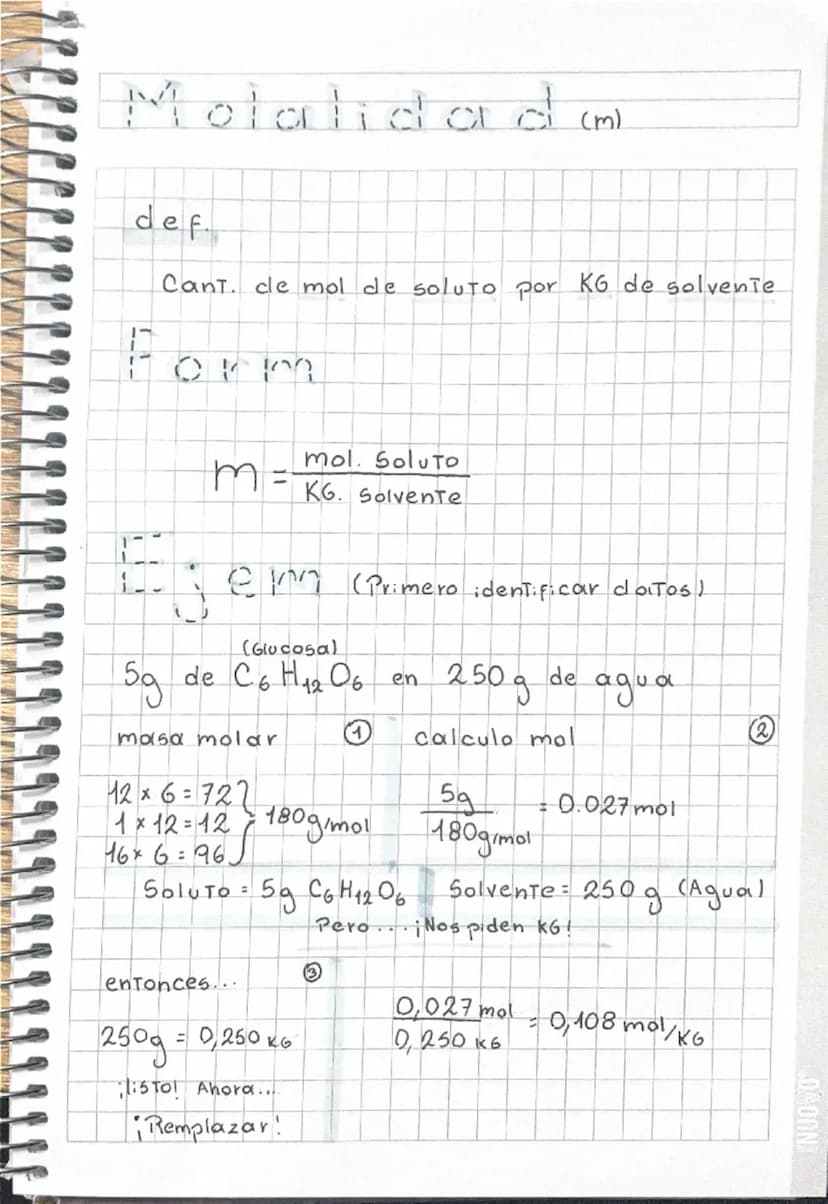 Molalidad (m)
def.
Cant. de mol de soluto por KG de solvente
Form
m = mol. soluto / KG. solvente
Ejem (Primero identificar datos)
(Glucosa)
5g de C₆H₁₂O₆ en 250g de agua
masa molar ①
12 x 6 = 72
1 x 12 = 12 } = 180g/mol
16 x 6 = 96
calculo mol ②
5g / 180g/mol = 0.027mol
Soluto = 5g C₆H₁₂O₆ Solvente = 250g (Agua)
Pero... ¡Nos piden KG!
entonces... ③
250g = 0,250 KG
¡listo! Ahora...
¡Remplazar!
0,027 mol / 0,250 KG = 0,108 mol/KG